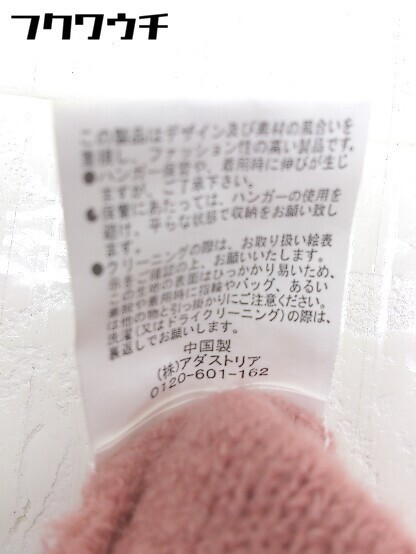 フクワウチ
この製品はデザイン及び素材の風合いを
重視し、ファッション性の高い製品です。
●ハンガー保管や、着用時に伸びが生じ
ますが、ご了承下さい。
●保管にあたっては、ハンガーの使用を
避け、平らな状態で収納をお願い致し
ます。
●クリーニングの際は、お取り扱い絵表
示をご確認の上、お願いいたします。
この生地の表面はひっかかり易いため、
着脱や着用時に指輪やバッグ、あるい
は他の物と引っ掛かりにご注意ください。
洗濯(又はドライクリーニング)の際は、
裏返しでお願いします。
中国製
(株)アダストリア
0120-601-162